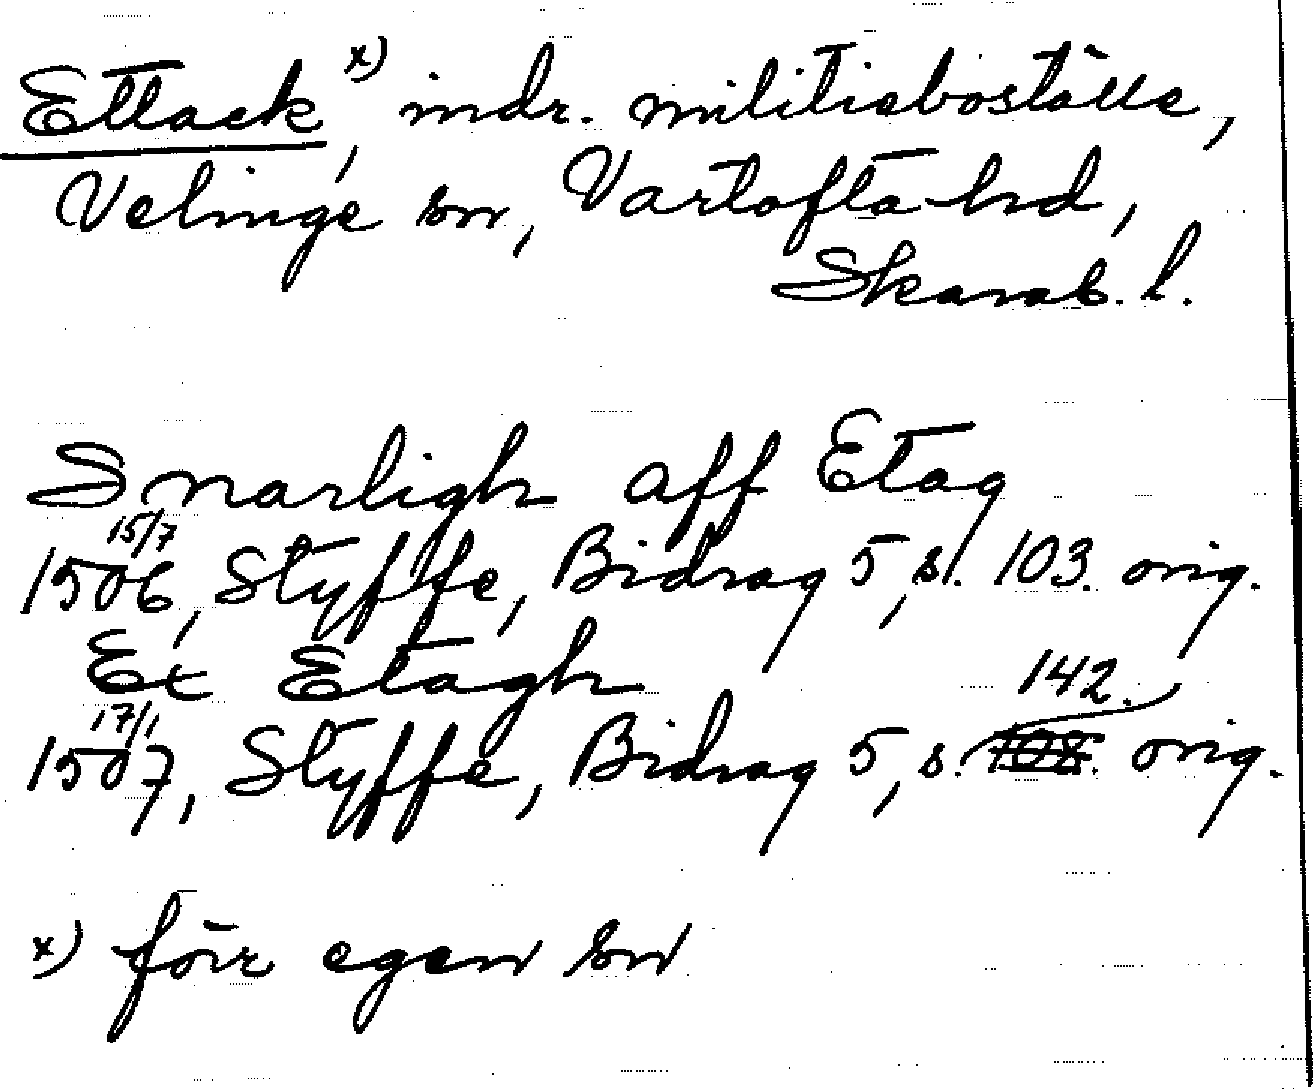 Ettack x), indr. militieboställe,
Velinge sn, Vartofta hd,
Skarab. l.
Snarligh aff Etag
15/7
1506, Styffe, Bidrag 5, s. 103. orig.
Ex Etagh
142.
17/1
1507, Styffe, Bidrag 5, s. 108. orig.
x) förr egen sn